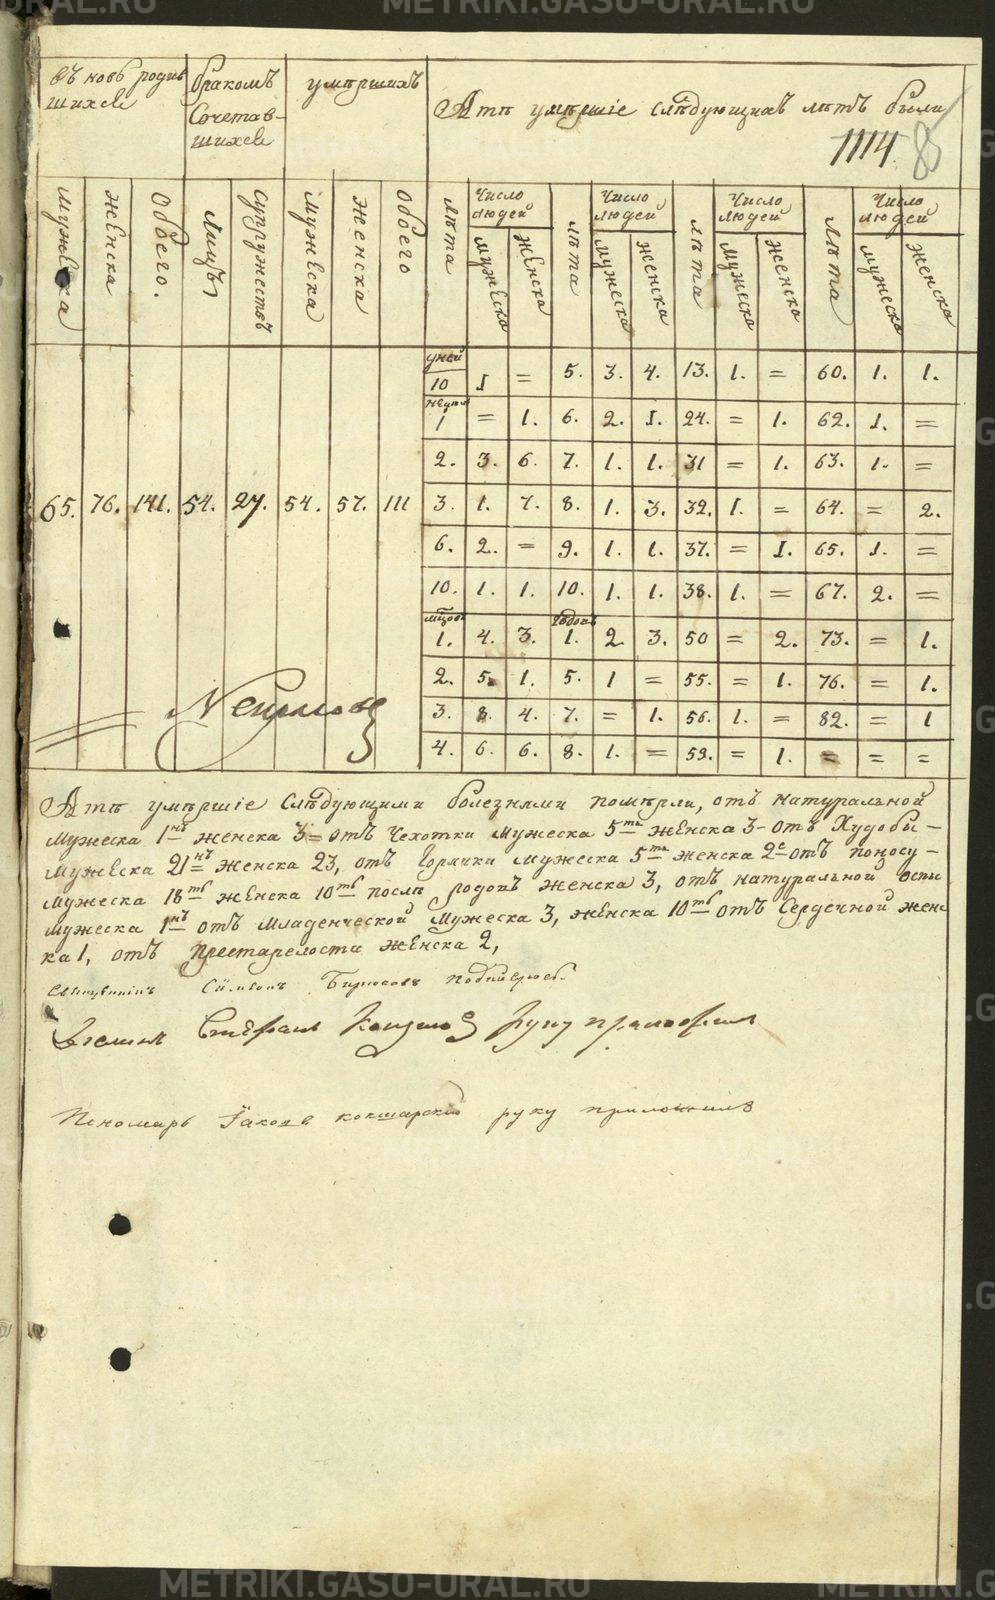 METRIKI.GASO-URAL.RU
родив
шихся
бракомъ
Сочетав-
шихся
умѣршихъ
А тѣ умѣршіе слѣдующихъ лѣтъ были
1114
мужеска
женска
обоего.
Лицъ
Супружествъ
мужеска
женска
обоего
лѣта
Число людей
мужеска
женска
лѣта
Число людей
мужеска
женска
лѣта
Число людей
мужеска
женска
лѣта
Число людей
мужеска
женска
дней
10 1 = 5. 3. 4. 13. 1. = 60. 1. 1.
1 = 1. 6. 2. 1. 24. = 1. 62. 1. =
2. 3. 6. 7. 1. 1. 31 = 1. 63. 1. =
65. 76. 141. 54. 27. 54. 57. 111 3. 1. 7. 8. 1. 3. 32. 1. = 64. = 2.
6. 2. = 9. 1. 1. 37. = 1. 65. 1. =
10. 1. 1. 10. 1. 1. 38. 1. = 67. 2. =
1. 4. 3. 1. 2 3. 50 = 2. 73. = 1.
2. 5. 1. 5. 1 = 55. = 1. 76. = 1.
3. 8. 4. 7. = 1. 56. 1. = 82. = 1
4. 6. 6. 8. 1. = 59. = 1. = = =
А тѣ умѣршіе слѣдующими болезнями помѣрли, отъ натуральной
мужеска 1нъ женска 3= отъ Чехотки мужеска 5ть женска 3- отъ Худобы-
мужеска 21нъ женска 23, отъ Горячки мужеска 5ть женска 2е отъ поносу-
мужеска 18ть женска 10ть послѣ родовъ женска 3, отъ натуральной оспы
мужеска 1нъ отъ Младенческой мужеска 3, женска 10ть отъ Сердечной женс
ка 1, отъ престарелости женска 2,
Священникъ Сѵмеонъ Бирюковъ
Стефанъ руку приложилъ
Пономарь Іаковъ кокшарскій руку приложилъ